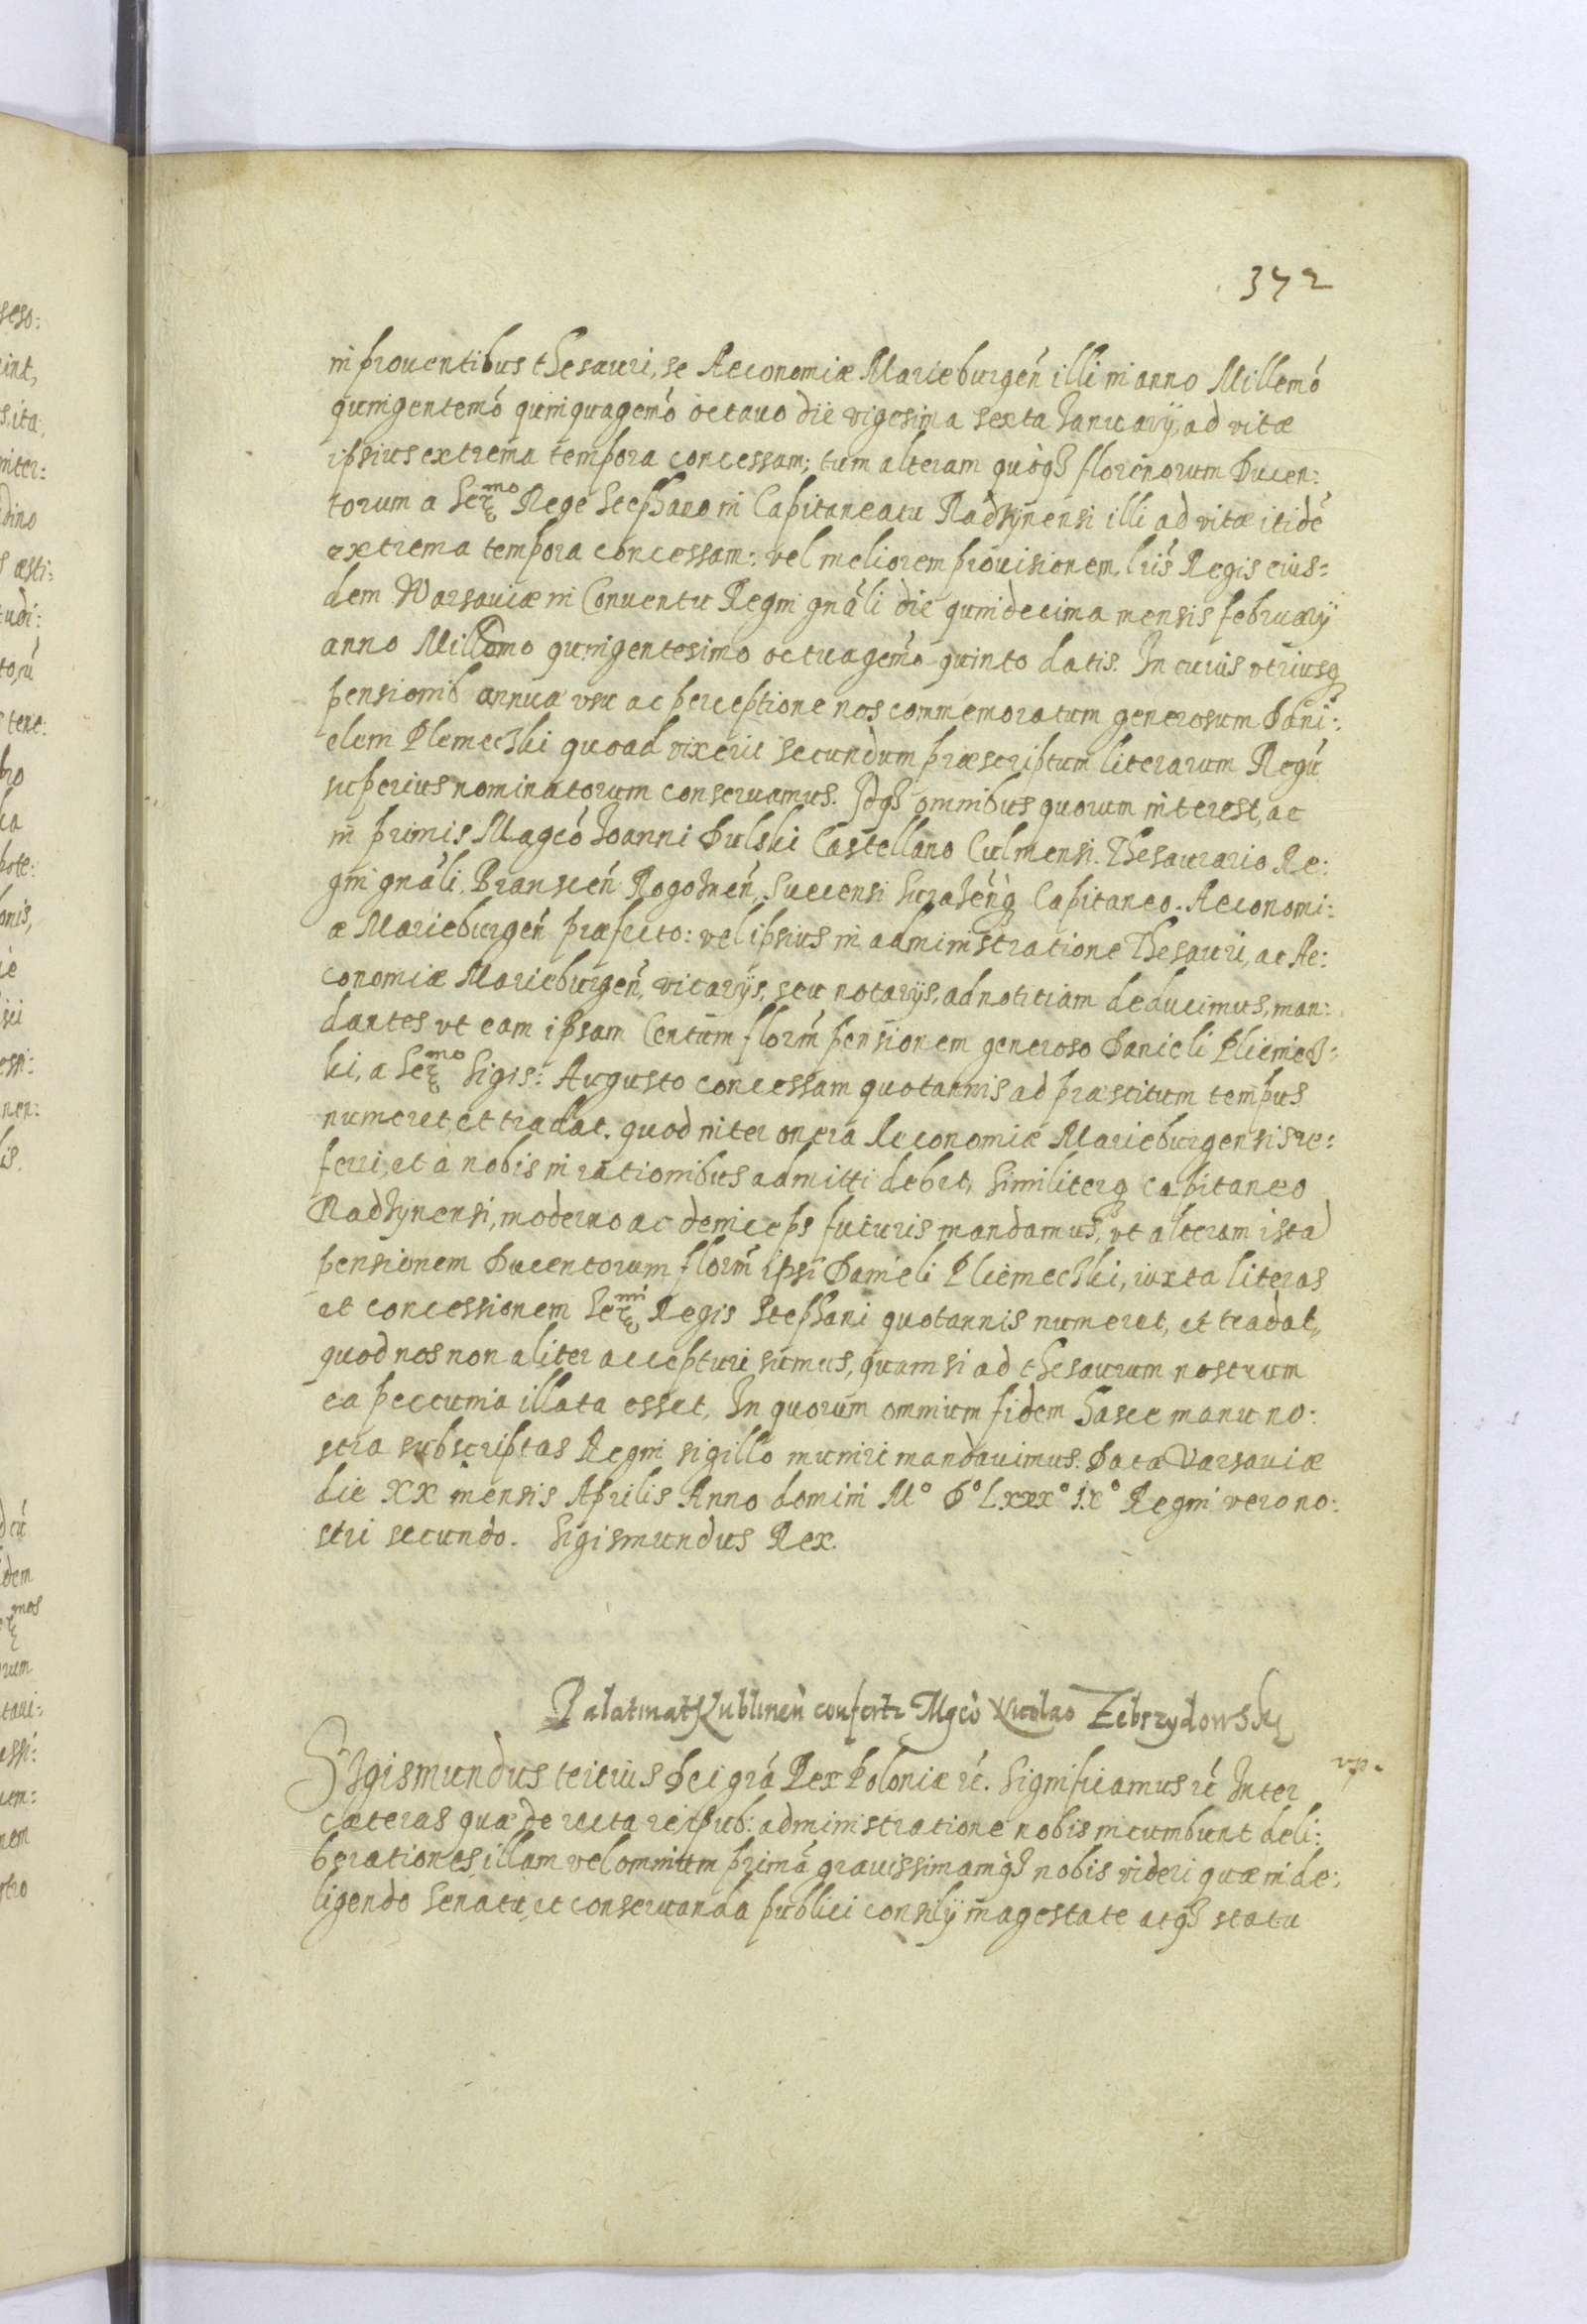 342
in prouentibus thesauri, se Aeconomiæ Marieburgeń illi in anno Millemó
quingentemó quinquagemó octauo die vigesima sexta Januarÿ, ad vitæ
ipsius extrema tempora concessam; tum alteram quoqȝ florenorum Ducen:
torum a Serᵐᵒ Rege Stephano in Capitaneatu Radzÿnensi illi ad vitæ itidē
extrema tempora concessam: vel meliorem prouisionem, lr̃is Regis eius=
dem Warsauiæ in Conuentu Regni gnāli die quindecima mensis februarÿ
anno Millomo quingentesimo octuagemó quinto datis. In cuius vtriusq
pensionis annua vsu ac perceptione nos commemoratum generosum Dani:
elem Plemeczki quoad vixerit secundum præscriptum literarum Regū
superius nominatorum conseruamus. Idqȝ omnibus quorum interest, ac
in primis Magcó Joanni Dulski Castellano Culmensi. Thesaurario Re:
gni gnāli. Branscēn Rogoznēn, Suecensi Surazēnq Capitaneo. Aeconomi:
æ Marieburgeń præfecto: vel ipsius in administratione Thesauri, ac Ae:
conomiæ Marieburgeń, vicarÿs, seu notarÿs, ad notitiam deducimus, man:
dantes vt eam ipsam Centum florm̃ pensionem generoso Danieli Pliemecz=
ki, a Serᵐᵒ Sigis: Augusto concessam quotannis ad præstitum tempus
numeret et tradat. quod inter onera Aeconomiæ Marieburgensis re:
ferri, et a nobis in rationibus admitti debet, Similiterq capitaneo
Radzynensi, moderno ac deinceps futuris mandamus, vt alteram istā
pensionem Ducentorum florm̃ ipsi Danieli Pliemeczki, iuxta literas
et concessionem Serᵐⁱ Regis Stephani quotannis numeret, et tradat,
quod nos non aliter accepturi sumus, quam si ad thesaurum nostrum
ea peccunia illata esset, In quorum omnium fidem hasce manu no:
stra subscriptas Regni sigillo muniri mandauimus. Data Varsauiæ
die XX mensis Aprilis Anno domini M° D° Lxxx° IX° Regni vero no:
stri secundo. Sigismundus Rex.
Palatinat Lublineń confertr Mgcó Nicolao Zebrzydowsky
Sigismundus tertius Dei grā Rex Poloniæ rē. Significamus rē Inter
cæteras quæ de recta reipub: administratione nobis incumbunt deli:
berationes illam vel omnium primā grauissimamqȝ nobis videri quæ in de:
ligendo Senatu, et conseruanda publici consilÿ magestate atqȝ statu